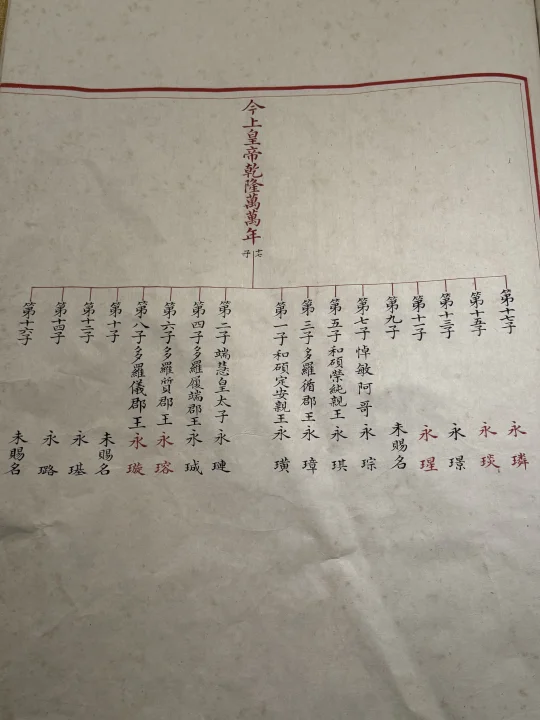 今上皇帝乾隆萬萬年
十七子
第十七子 永璘
第十五子 永琰
第十三子 永璟
第十一子 永瑆
第九子 未賜名
第七子悼敏阿哥永琮
第五子和碩榮純親王永琪
第三子多羅循郡王永璋
第一子和碩定安親王永璜
第二子端慧皇太子永璉
第四子多羅履端郡王永珹
第六子多羅質郡王永瑢
第八子多羅儀郡王永璇
第十子 未賜名
第十二子 永璂
第十四子 永璐
第十六子 未賜名